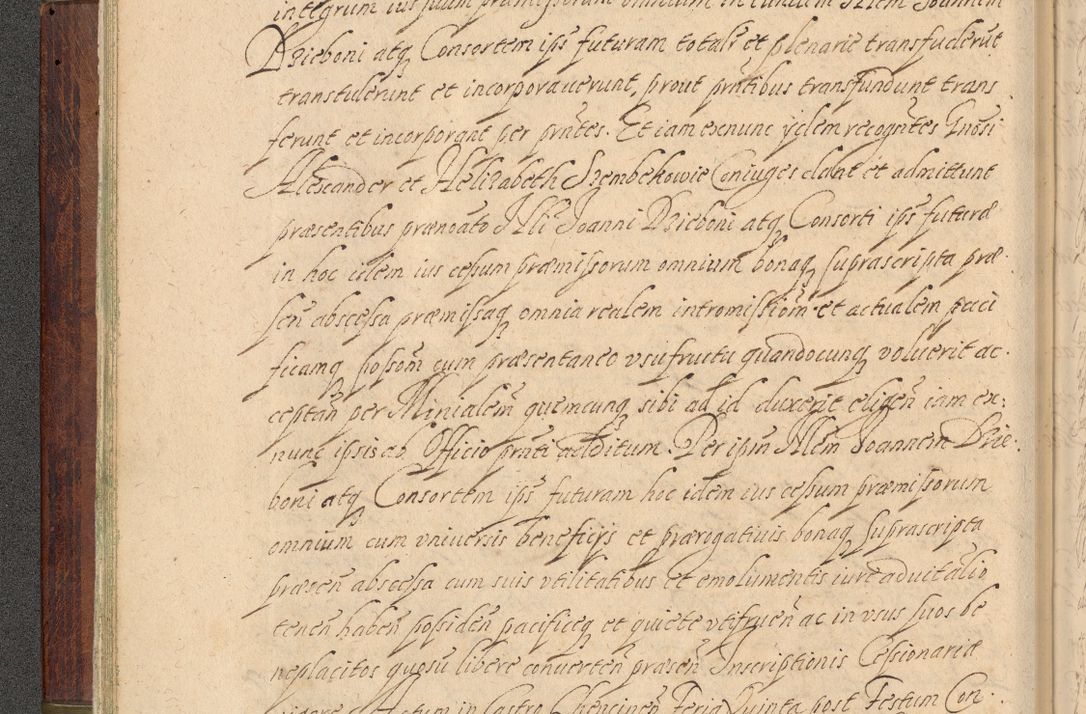 integrum ius suum præmissorum omnium in eundem Illem Joannem
Dzieboni atq Consortem ips futuram totalr et plenarie transfuderūt
transtulerunt et incorporauerunt, prout prntibus transfundunt trans
ferunt et incorporant per prntes. Et iam exnunc ydem recogntes Gnosi
Alexander et Helizabeth Szembekowie Coniuges dant et admittunt
præsentibus prænoato Illi Joanni Dzieboni atq Consorti ips futuræ
in hoc idem ius cessum præmissorum omnium bonaq suprascripta præ
sen abscessa præmissaq omnia realem intromissiom et actualem paci
ficamq possom cum præsentaneo vsufructu quandocunq voluerit ac
ceptan per Minialem quemcunq sibi ad id duxerit eligen iam ex:
nunc ipsis ab Officio prnti additum. Per ipm Illem Joannem Dzie:
boni atq Consortem ips futuram hoc idem ius cessum præmissorum
omnium cum vniuersis beneficijs et prærogatiuis bonaq suprascripta
præsen abscessa cum suis vtilitatibus et emolumentis iure aduitalio
tenen haben possiden pacificeq et quiete vtifruen ac in vsus suos be
neplacitos quosu libere conuerten præsen Inscriptionis Cessionariæ
in Castro Chencinen Feria Quinta post Festum Con